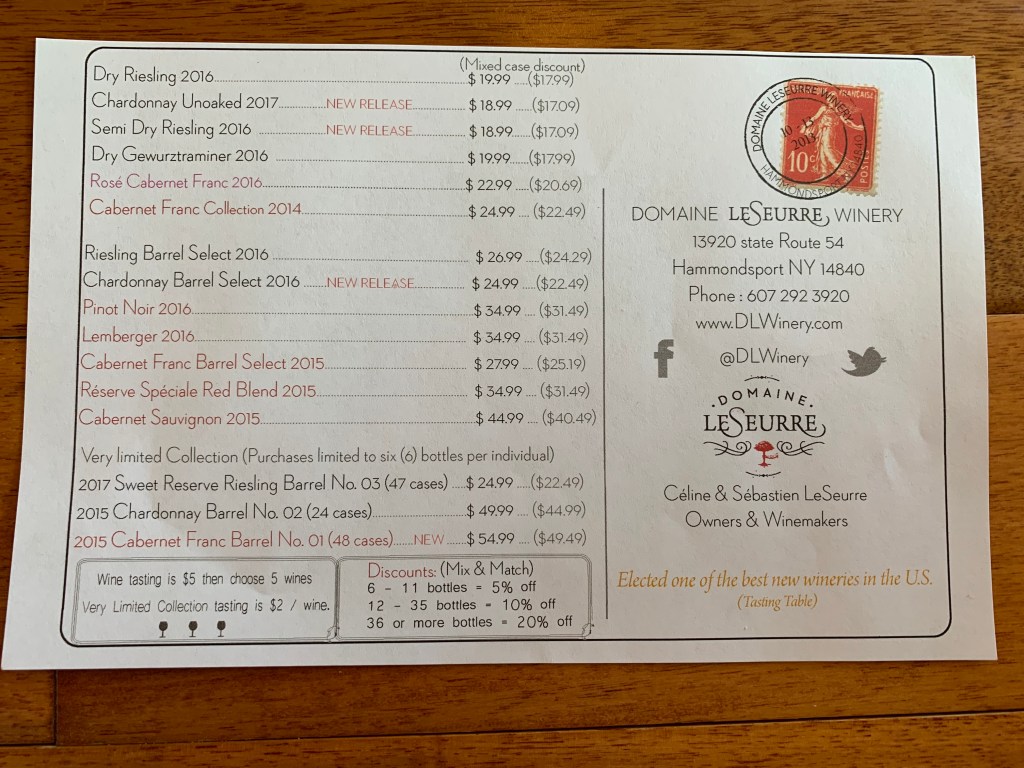 (Mixed case discount)
Dry Riesling 2016 $ 19.99 ($17.99)
Chardonnay Unoaked 2017 NEW RELEASE $ 18.99 ($17.09)
Semi Dry Riesling 2016 NEW RELEASE $ 18.99 ($17.09)
Dry Gewurztraminer 2016 $ 19.99 ($17.99)
Rosé Cabernet Franc 2016 $ 22.99 ($20.69)
Cabernet Franc Collection 2014 $ 24.99 ($22.49)
Riesling Barrel Select 2016 $ 26.99 ($24.29)
Chardonnay Barrel Select 2016 NEW RELEASE $ 24.99 ($22.49)
Pinot Noir 2016 $ 34.99 ($31.49)
Lemberger 2016 $ 34.99 ($31.49)
Cabernet Franc Barrel Select 2015 $ 27.99 ($25.19)
Réserve Spéciale Red Blend 2015 $ 34.99 ($31.49)
Cabernet Sauvignon 2015 $ 44.99 ($40.49)
Very limited Collection (Purchases limited to six (6) bottles per individual)
2017 Sweet Reserve Riesling Barrel No. 03 (47 cases) $ 24.99 ($22.49)
2015 Chardonnay Barrel No. 02 (24 cases) $ 49.99 ($44.99)
2015 Cabernet Franc Barrel No. 01 (48 cases) NEW $ 54.99 ($49.49)
Wine tasting is $5 then choose 5 wines
Very Limited Collection tasting is $2 / wine.
Discounts: (Mix & Match)
6 - 11 bottles = 5% off
12 - 35 bottles = 10% off
36 or more bottles = 20% off
DOMAINE LESEURRE WINERY
10 - 13
2013
HAMMONDSPORT 14840
FRANÇAISE
10c
POSTES
DOMAINE LESEURRE WINERY
13920 state Route 54
Hammondsport NY 14840
Phone : 607 292 3920
www.DLWinery.com
@DLWinery
DOMAINE
LESEURRE
Céline & Sébastien LeSeurre
Owners & Winemakers
Elected one of the best new wineries in the U.S.
(Tasting Table)